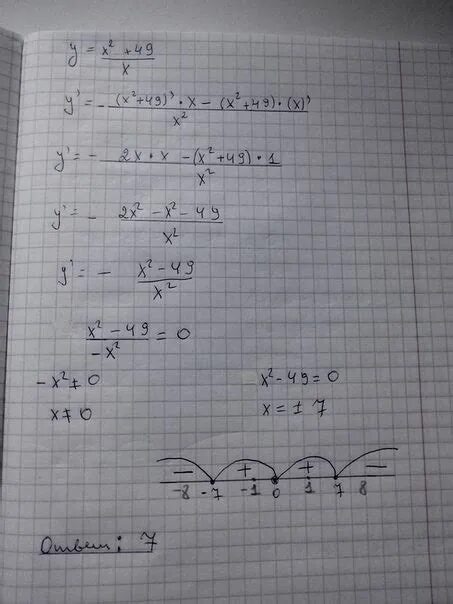 y = (x² + 49)/x
y' = - ((x²+49)' · x - (x²+49) · (x)')/x²
y' = - (2x · x - (x²+49) · 1)/x²
y' = - (2x² - x² - 49)/x²
y' = - (x² - 49)/x²
(x² - 49)/(-x²) = 0
-x² ≠ 0 x² - 49 = 0
x ≠ 0 x = ± 7
- + + -
-8 -7 -1 0 1 7 8
Ответ: 7